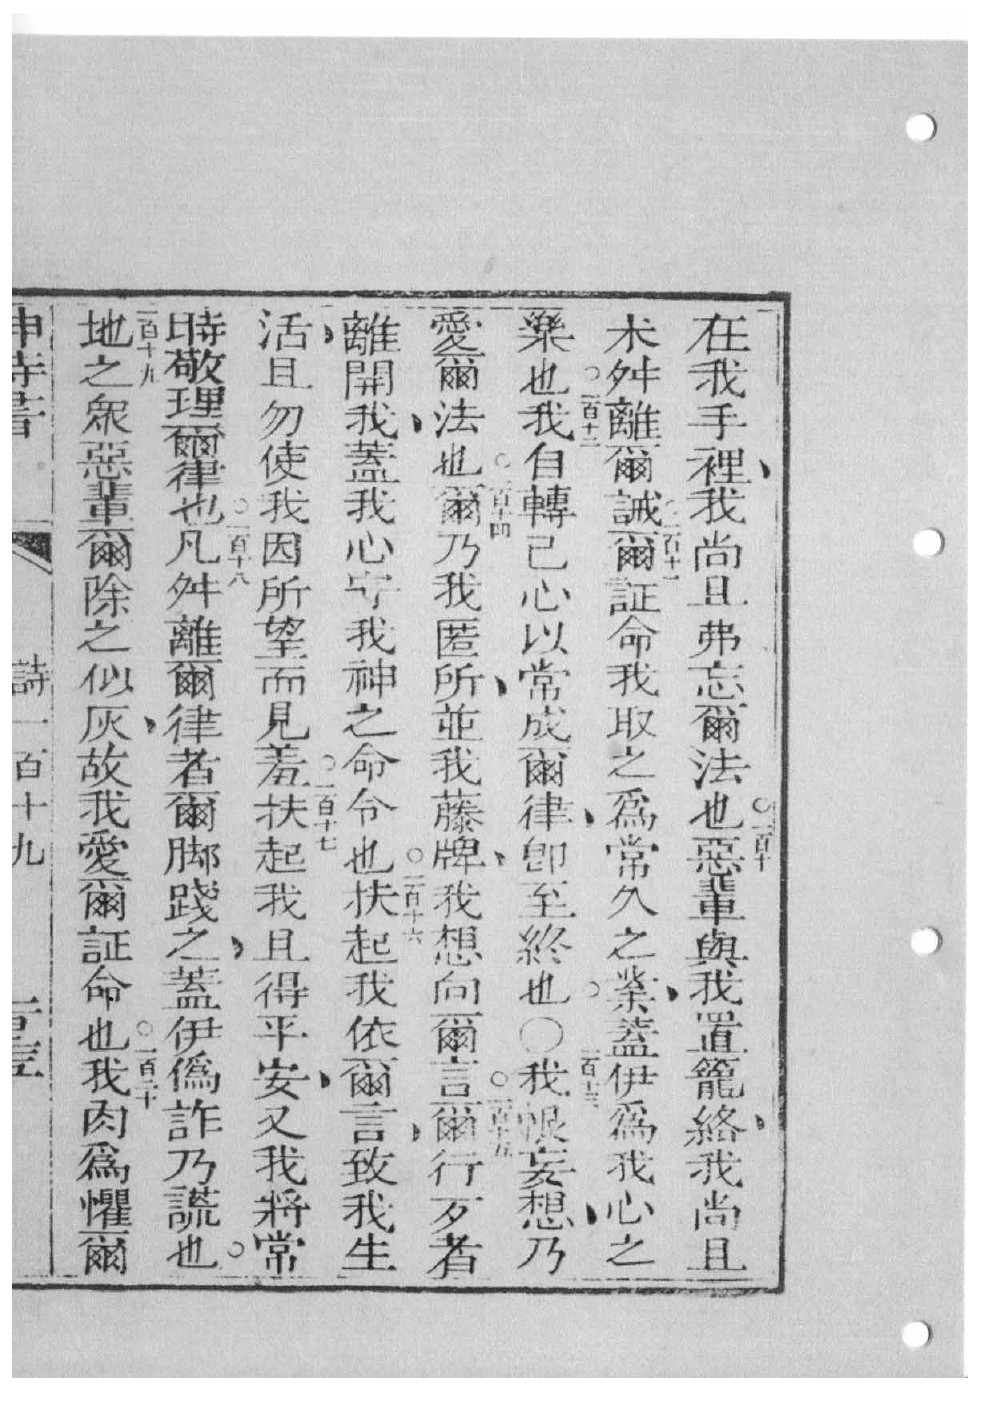 在我手裡我尚且弗忘爾法也○一百十惡輩與我置籠絡我尚且
未舛離爾誡○一百十一爾証命我取之爲常久之業蓋伊爲我心之
樂也○一百十二我自轉己心以常成爾律卽至終也○○一百十三我恨妄想乃
愛爾法也○一百十四爾乃我匿所並我藤牌我想向爾言○一百十五爾行歹者
離開我蓋我心守我神之命令也○一百十六扶起我依爾言致我生
活且勿使我因所望而見羞○一百十七扶起我且得平安又我將常
時敬理爾律也○一百十八凡舛離爾律者爾脚踐之蓋伊僞詐乃謊也○
一百十九地之眾惡輩爾除之似灰故我愛爾証命也○一百二十我肉爲懼爾
神詩書 詩一百十九